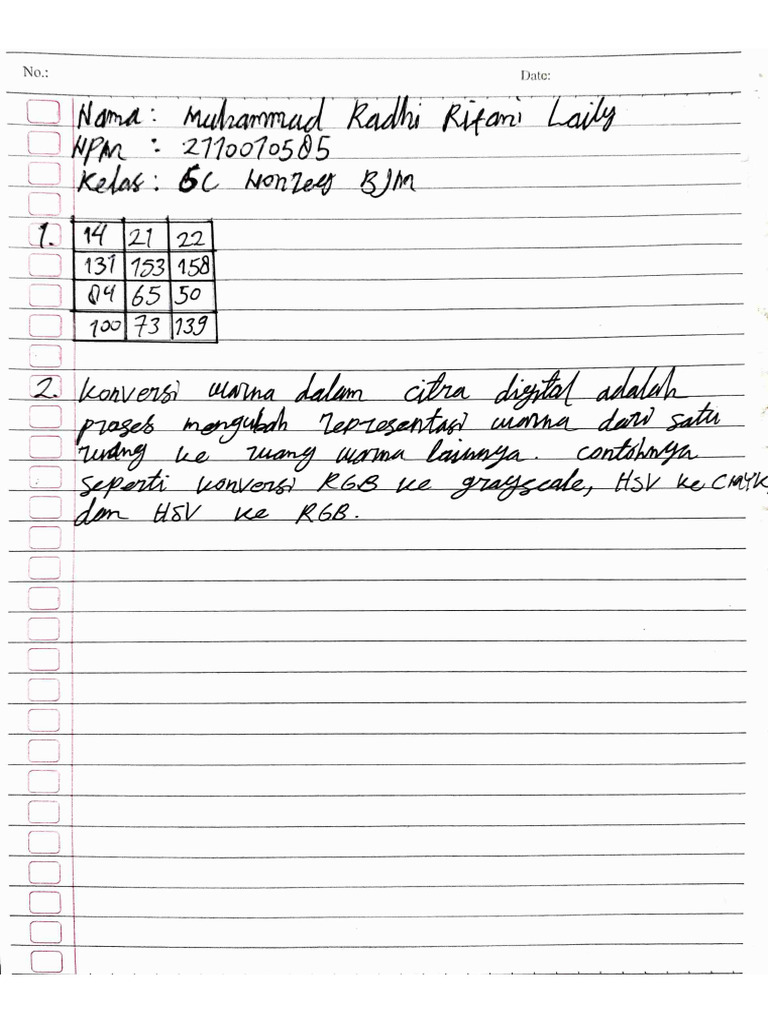 No.:
Date:
Nama : Muhammad Radhi Rifani Laily
NPM : 2110010585
Kelas : 6C Nonreg BJM
1.
14 21 22
131 153 158
84 65 50
100 73 139
2. Konversi warna dalam citra digital adalah
proses mengubah representasi warna dari satu
ruang ke ruang warna lainnya. contohnya
seperti konversi RGB ke grayscale, HSV ke CMYK,
dan HSV ke RGB.